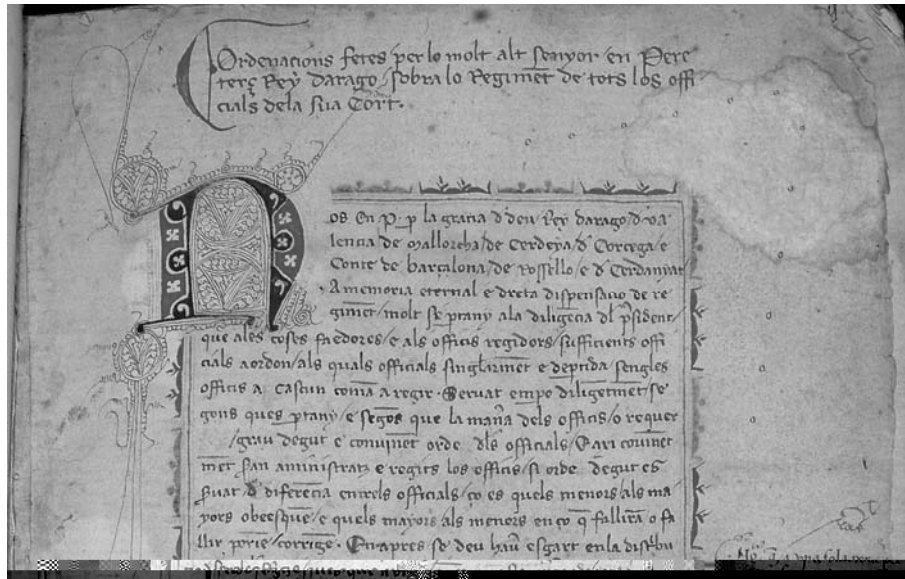 Ordenacions fetes per lo molt alt senyor en Pere
terç Rey darago / sobra lo Regimēt de tots los offi
cials dela sua Cort.
Nos En .P. p la gracia d deu Rey darago / d va
lencia de Mallorcha / de Cerdeya / d Corcega / e
Conte de barçalona / de rossello / e d Cerdanya
A memoria eternal e dreta dispensacio de re
gimēt / molt se ptany ala diligēcia dl psident /
que ales coses faedores / e als officis regidors / sufficients offi
cials aordon / als quals officials singlarmēt e deptida sengles
officis a cascun comā a regir. Servat empo diligētmēt / se
gons ques ptany / e segōs que la maña dels officis / o requer
/ grau degut e convinēt orde dls officials / E
mēt san aministrats e regits los officis / si orde degut es
suat d diferēcia entrels officials / ço es quels menors / als ma
yors obeesquē / e quels mayors / als menors en ço q fallirā o fa
llir poriē / corrigē. En apres se deu hau esgart en la distbu